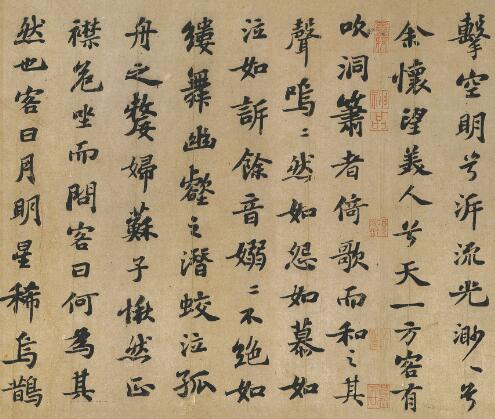 擊空明兮泝流光渺〻兮
余懷望美人兮天一方客有
吹洞簫者倚歌而和之其
聲嗚〻然如怨如慕如
泣如訴餘音嫋〻不絕如
縷舞幽壑之潛蛟泣孤
舟之嫠婦蘇子愀然正
襟危坐而問客曰何為其
然也客曰月明星稀烏鵲